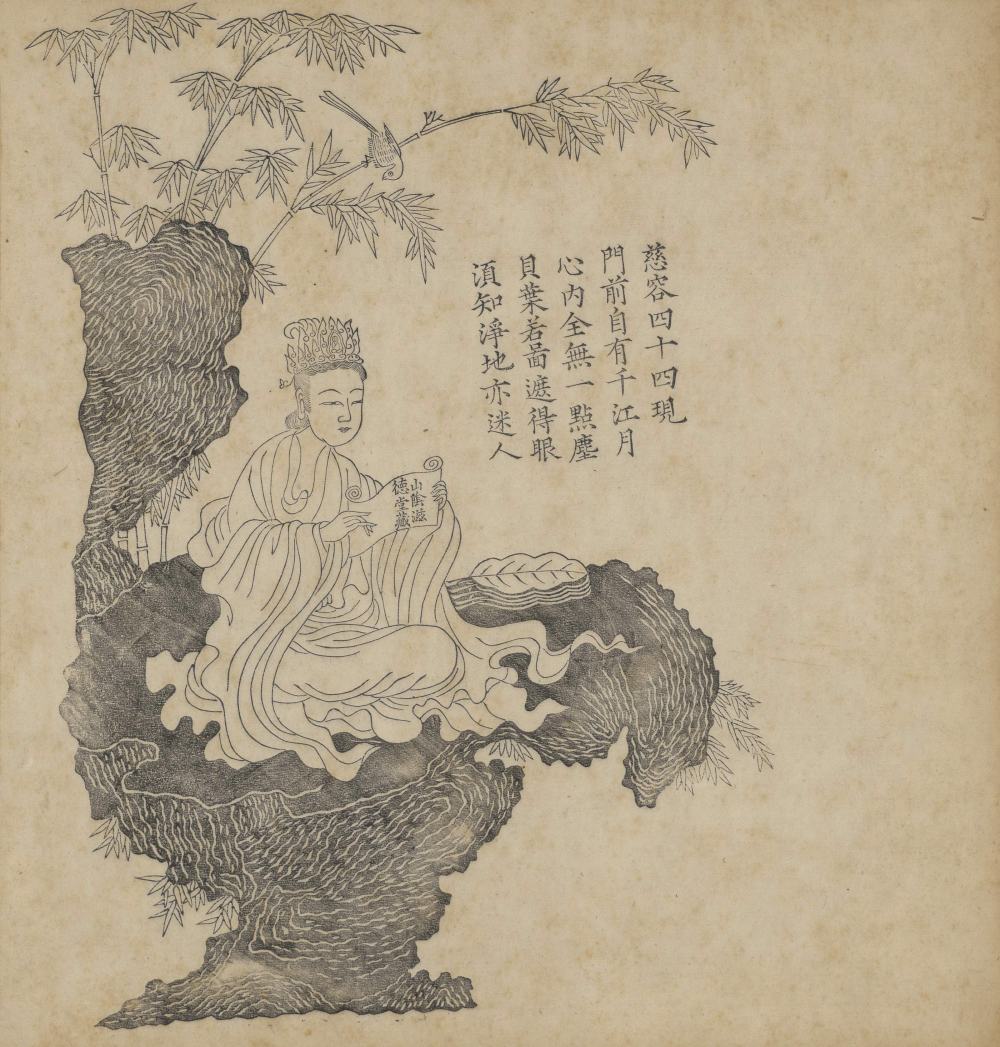 慈容四十四現
門前自有千江月
心内全無一點塵
貝葉若啚遮得眼
湏知淨地亦迷人
山陰滋
德堂藏